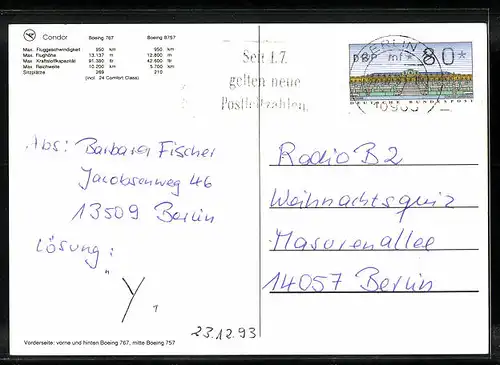 Condor
Boeing 767 Boeing B757
Max. Fluggeschwindigkeit 950 km 950 km
Max. Flughöhe 13.137 m 12.800 m
Max. Kraftstoffkapazität 91.380 ltr 42.600 ltr
Max. Reichweite 10.200 km 5.700 km
Sitzplätze 269 210
(incl. 24 Comfort Class)
Seit 1.7.
gelten neue
Postleitzahlen.
BERLIN
DBP 80*
DEUTSCHE BUNDESPOST
Abs: Barbara Fischer
Jacobsenweg 46
13509 Berlin
Lösung:
"Y"
23.12.93
Radio B2
Weihnachtsquiz
Masurenallee
14057 Berlin
Vorderseite: vorne und hinten Boeing 767, mitte Boeing 757